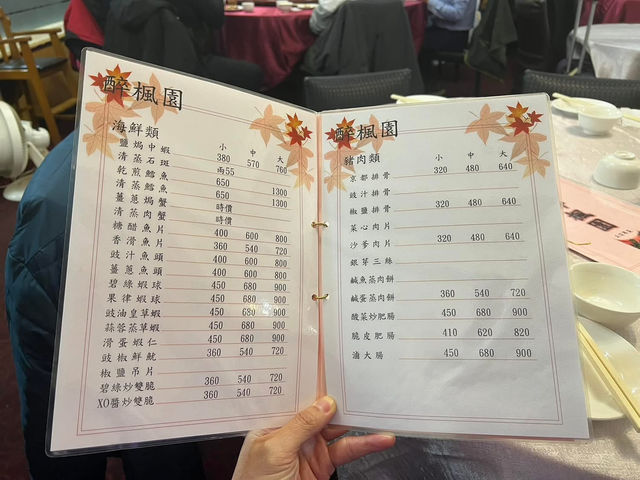 醉楓園
海鮮類 小 中 大
鹽焗中蝦 380 570 760
清蒸石斑 兩55
乾煎鱈魚 650 1300
清蒸鱈魚 650 1300
薑蔥焗蟹 時價
清蒸肉蟹 時價
糖醋魚片 400 600 800
香滑魚片 360 540 720
豉汁魚頭 400 600 800
薑蔥魚頭 400 600 800
碧綠蝦球 450 680 900
果律蝦球 450 680 900
豉油皇草蝦 450 680 900
蒜蓉蒸草蝦 450 680 900
滑蛋蝦仁 450 680 900
豉椒鮮魷 360 540 720
椒鹽吊片
碧綠炒雙脆 360 540 720
XO醬炒雙脆 360 540 720
醉楓園
豬肉類 小 中 大
京都排骨 320 480 640
豉汁排骨
椒鹽排骨 320 480 640
菜心肉片
沙爹肉片 320 480 640
銀芽三絲
鹹魚蒸肉餅
鹹蛋蒸肉餅 360 540 720
酸菜炒肥腸 450 680 900
脆皮肥腸 410 620 820
滷大腸 450 680 900